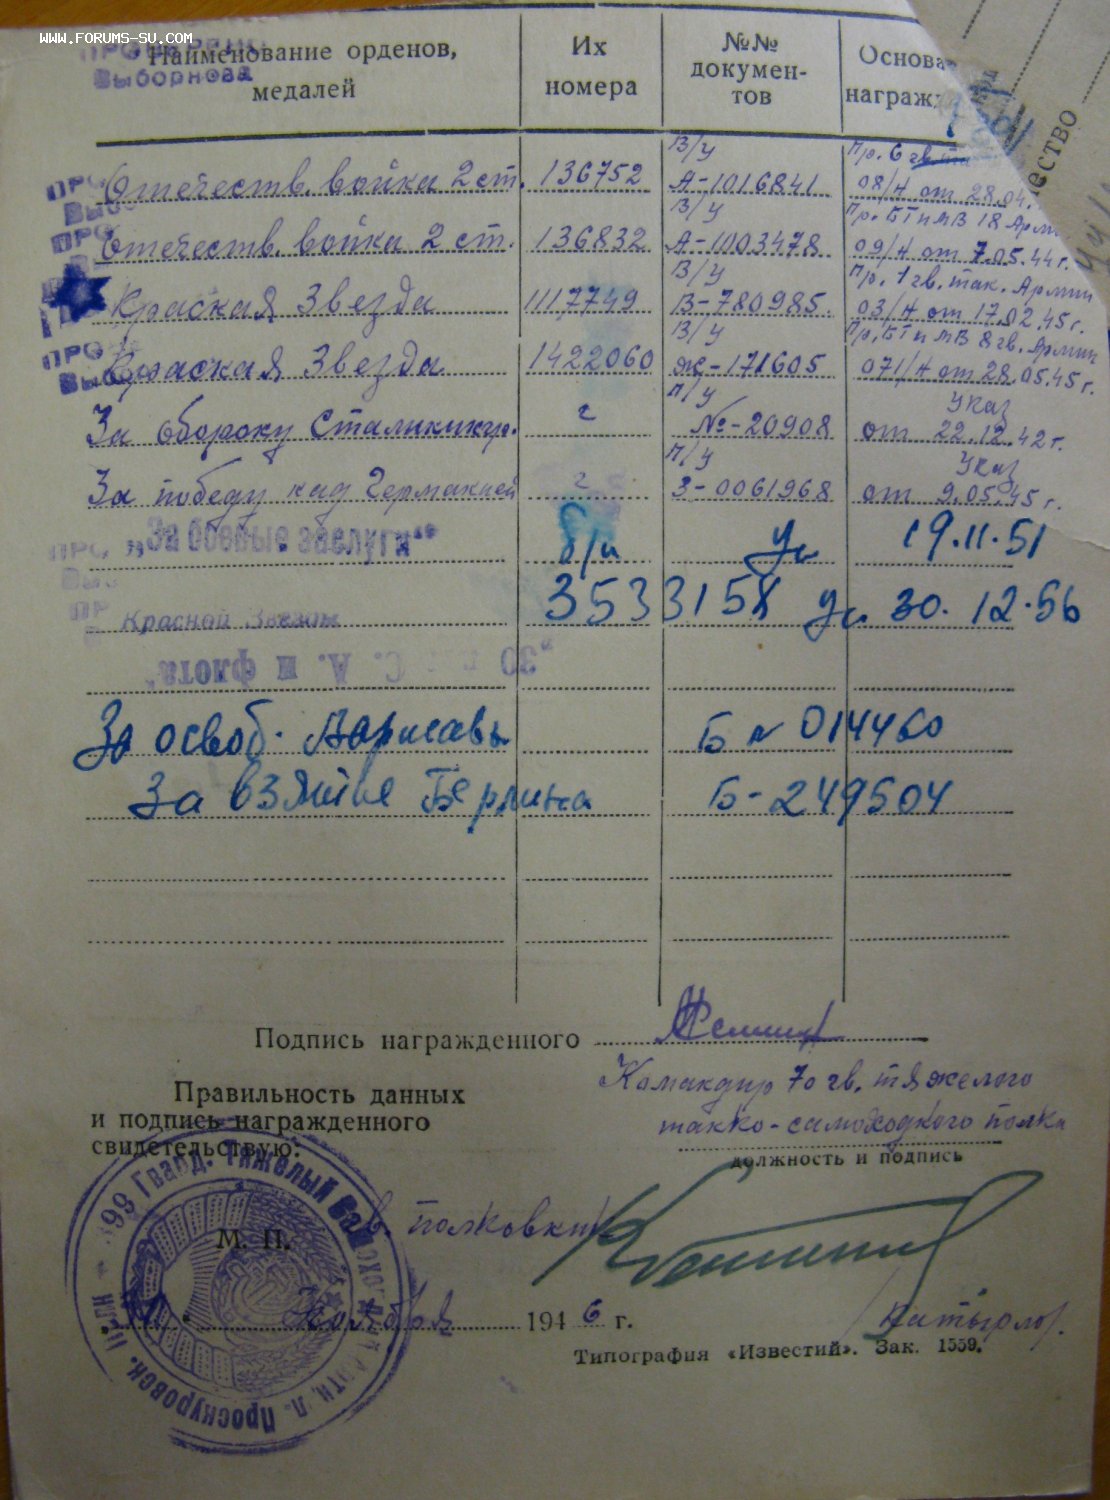 www.forums-su.com
ПРОВЕРЕНО
Выборнова
Наименование орденов, медалей
Их номера
№№ документов
Основа
награжд
ество
Отечеств. война 2 ст. 136752 В/у А-1016841 Пр. 6 гв. та 08/н от 28.04.
Отечеств. война 2 ст. 136832 В/у А-1003478 Пр. БТ и МВ 18 Арми 09/н от 7.05.44 г.
Красная Звезда 1117749 В/у В-780985. Пр. 1 гв. так. Армии 03/н от 17.02.45 г.
Красная Звезда 1422060 В/у Ж-171605 Пр. БТ и МВ 8 гв. Армии 071/н от 28.05.45 г.
За оборону Сталинингр. г П/у №-20908 Указ от 22.12.42 г.
За победу над Германией г П/у З-0061968 Указ от 9.05.45 г.
„За боевые заслуги“ б/н ук 19.11.51
Красной Звезды 3533158 ук 30.12.56
„30 С. А. и флота“
За освоб. Варшавы Б № 014460
За взятие Берлина Б-249504
Подпись награжденного
Командир 70 гв. тяжелого
танко-самоходного полка
должность и подпись
Правильность данных
и подпись награжденного
свидетельствую:
гв. полковник
М. П.
Ноября 1946 г.
Типография «Известий». Зак. 1559.
99 Гвард. Тяжелый Проскуровск.